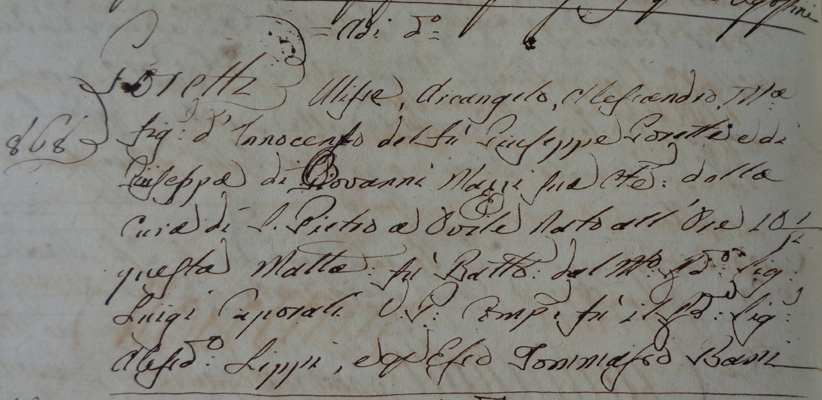 = Adi d.º
Goretti Ulisse, Arcangelo, Alessandro, M.ª
868 fig: d'Innocenzo del fù Giuseppe Goretti e di
Giuseppa di Giovanni Mazzi sua C.te: dalla
Cura di S. Pietro a Ovile Nato all'Ore 10 1/2
questa Matta: fù Batt.º: dal M.º R.do Sig:
Luigi Caporali V. P: Comp.e fù il R.do: Sig:
Aless.dro: Lippi, e per Esso Tommasso Bani